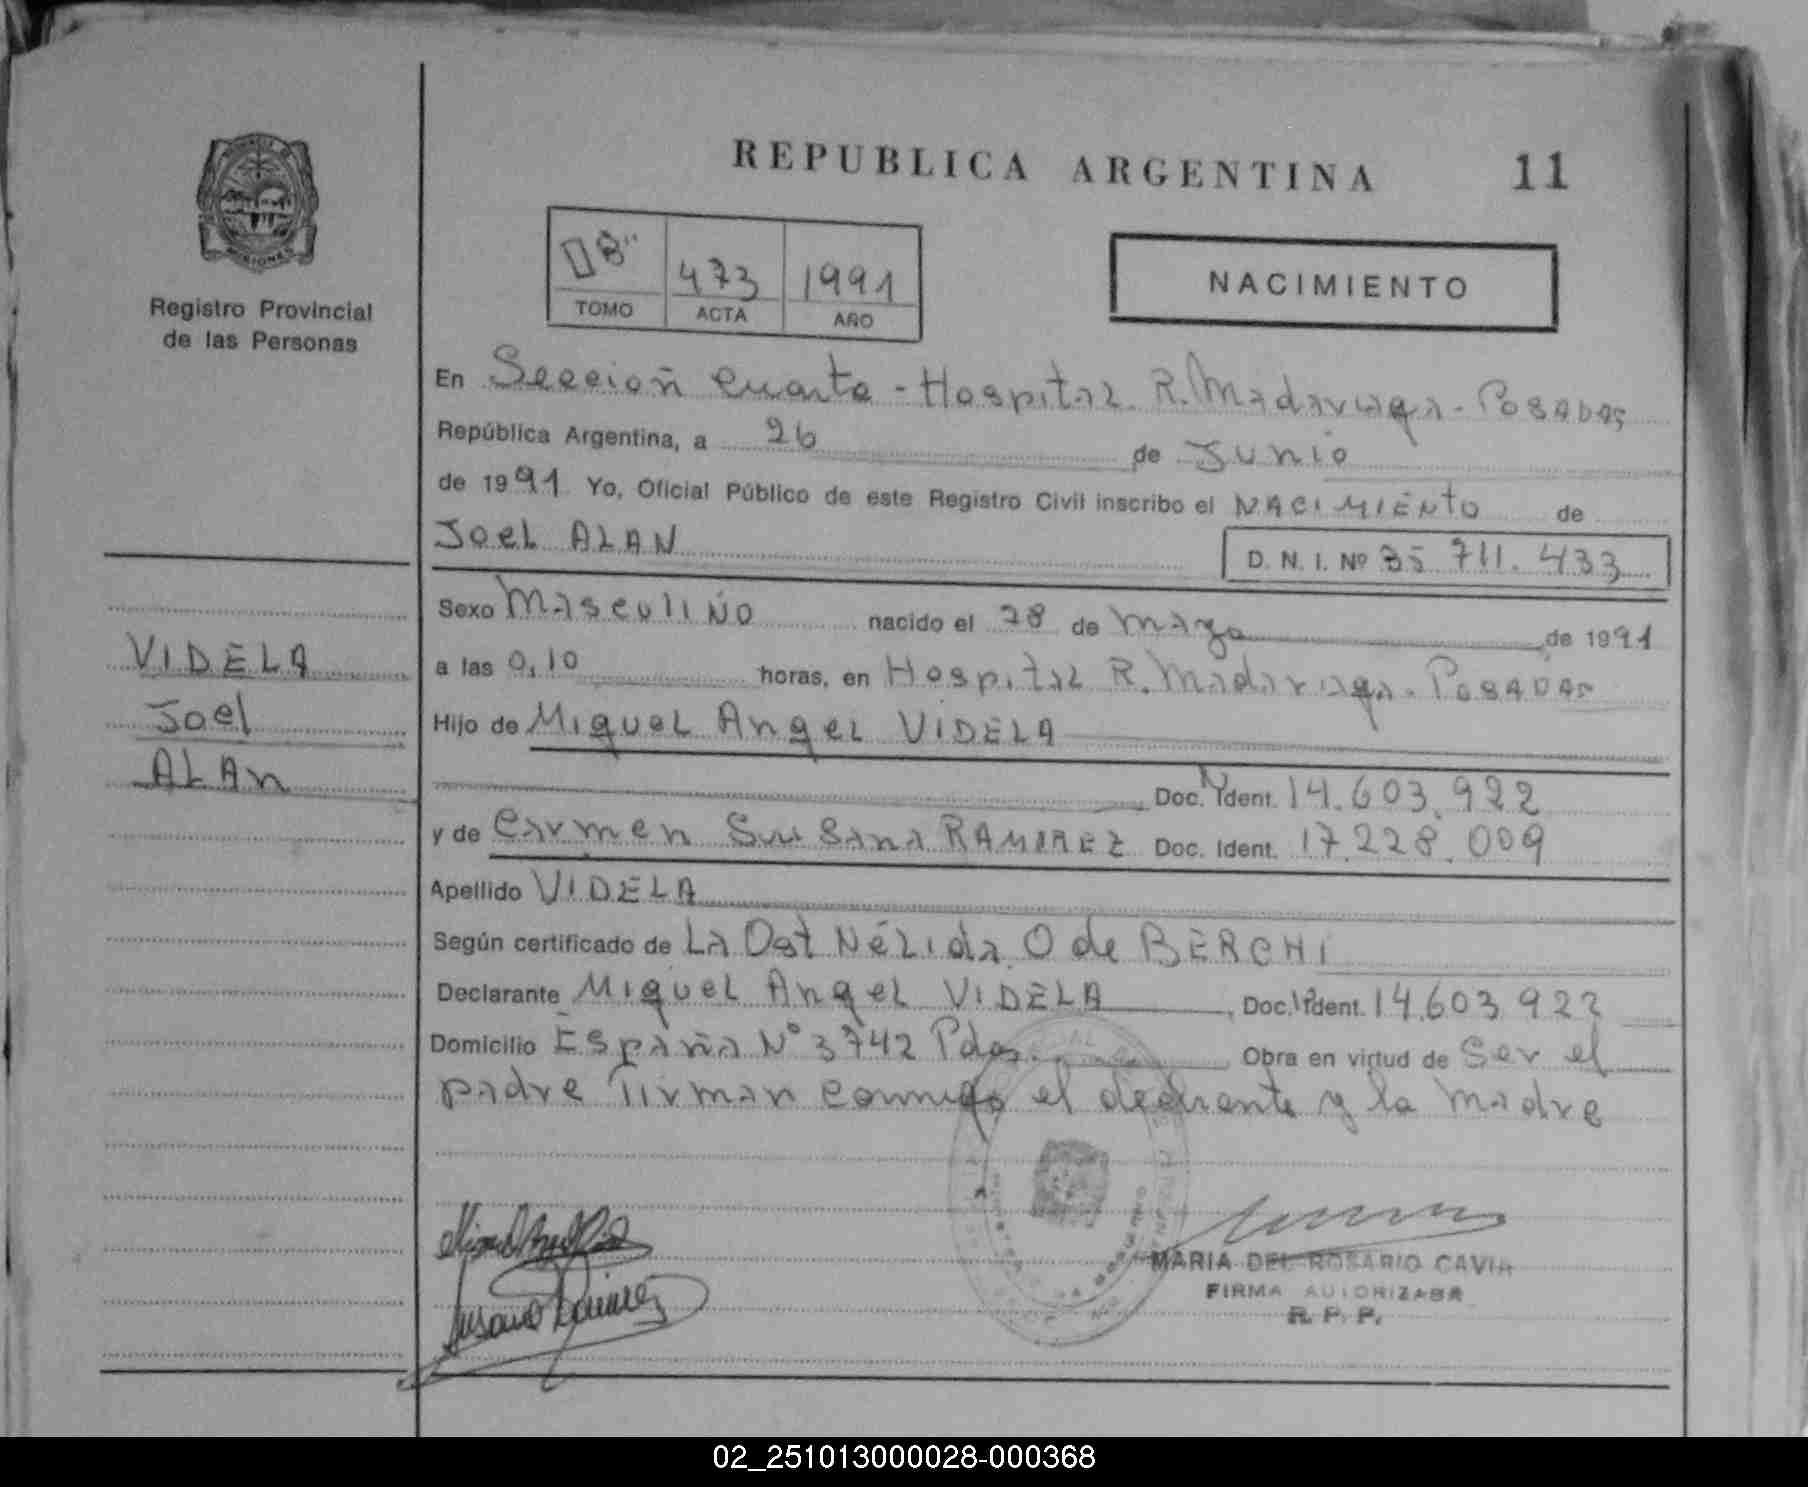 REPUBLICA ARGENTINA 11
Registro Provincial
de las Personas
473 1991
TOMO ACTA AÑO
NACIMIENTO
En Sección Cuarta - Hospital R. Madariaga - POSADAS
República Argentina, a 26 de Junio
de 1991 Yo, Oficial Público de este Registro Civil inscribo el NACIMIENTO de
Joel ALAN D. N. I. Nº 35.711.433
VIDELA
Joel
ALAN
Sexo Masculino nacido el 28 de Mayo de 1991
a las 0,10 horas, en Hospital R. Madariaga - POSADAS
Hijo de Miguel Angel VIDELA
Doc. Ident. 14.603.922
y de Carmen Susana RAMIREZ Doc. Ident. 17.228.009
Apellido VIDELA
Según certificado de La Ost Nélida O de BERCHI
Declarante Miguel Angel VIDELA Doc. Ident. 14.603.922
Domicilio España Nº 3742 Pdas. Obra en virtud de Ser el
padre Firman conmigo el declarante y la Madre
Susana Ramirez
MARIA DEL ROSARIO CAVIA
FIRMA AUTORIZADA
R. P. P.
02_251013000028-000368